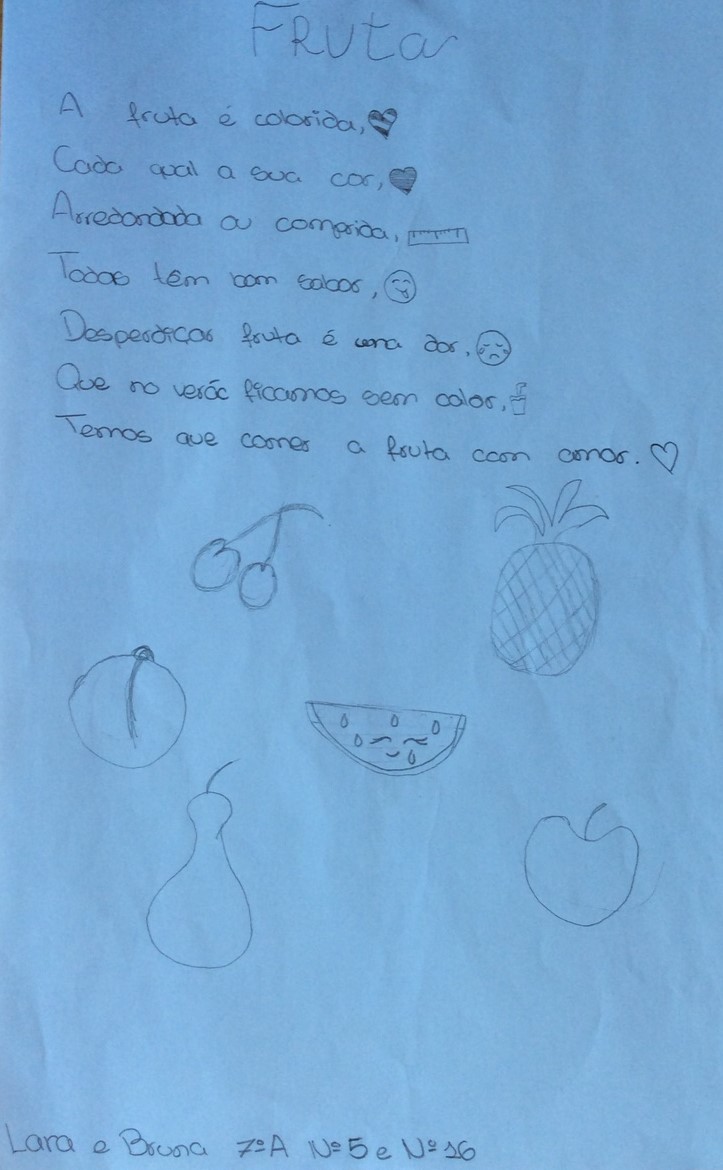 Fruta
A fruta é colorida,
Cada qual a sua cor,
Arredondada ou comprida,
Todas têm bom sabor,
Desperdiçar fruta é uma dor,
Que no verão ficamos sem calor,
Temos que comer a fruta com amor.
Lara e Bruna 7ºA Nº5 e Nº16